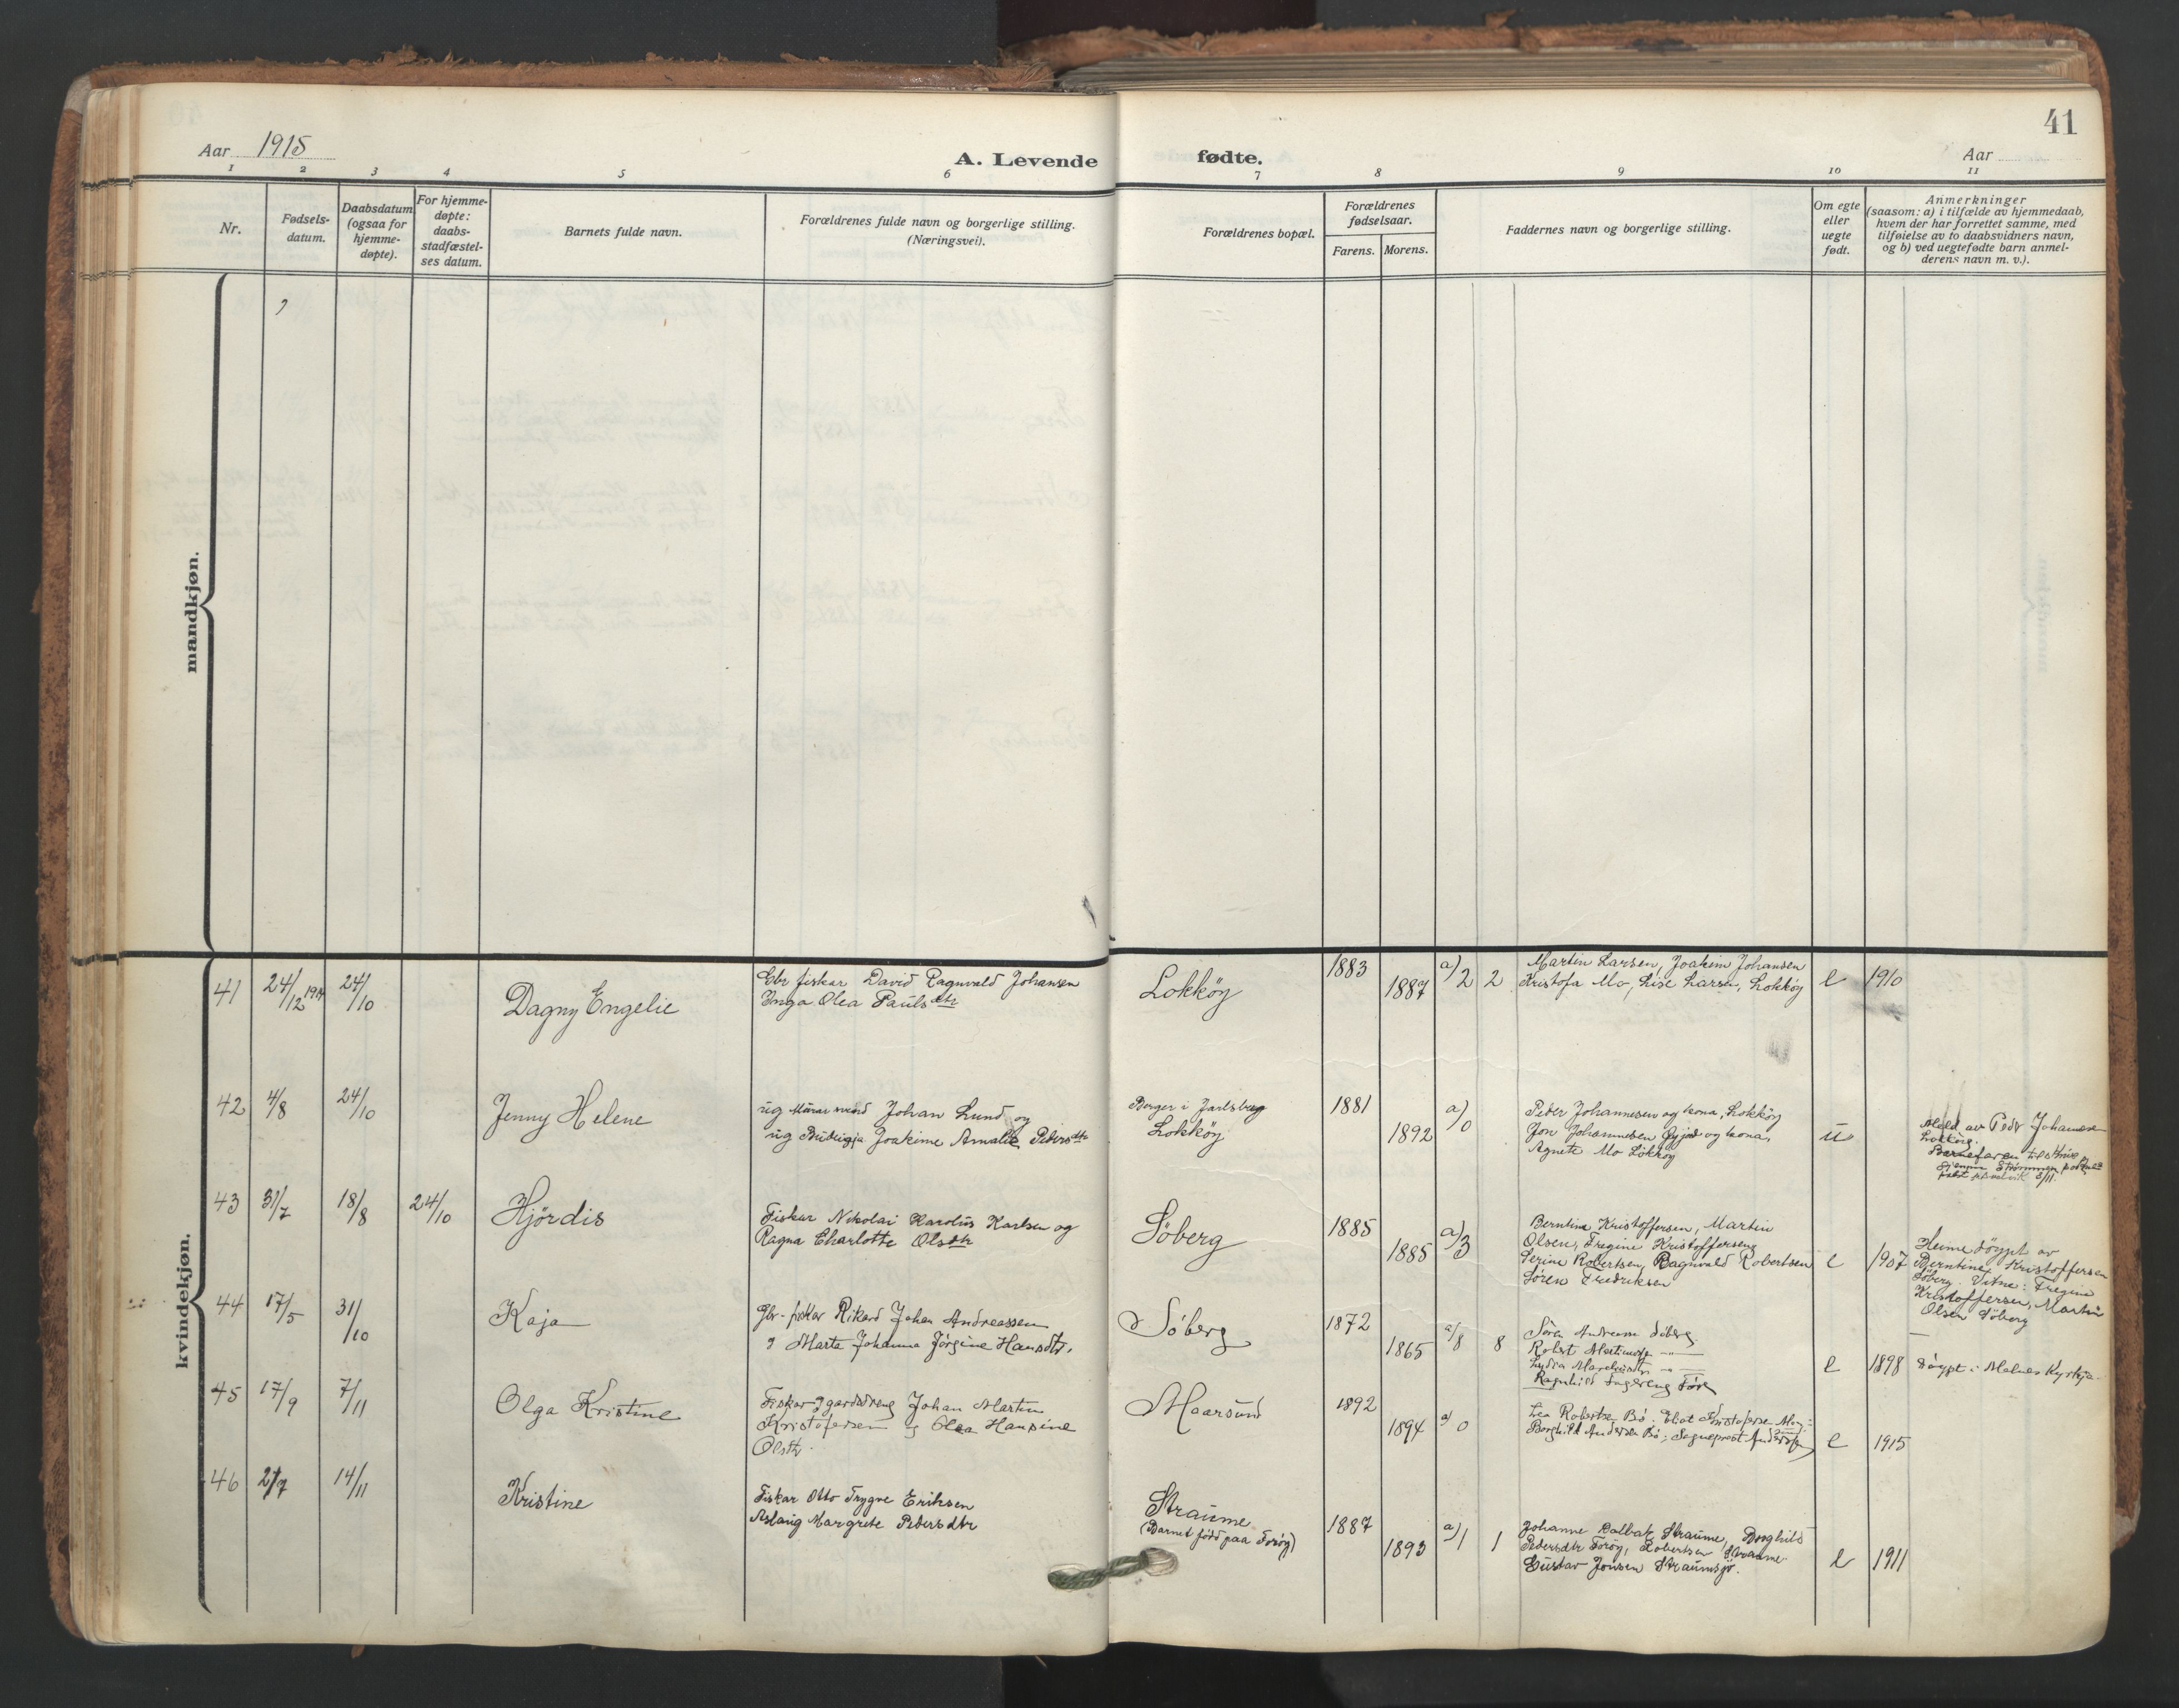 Aar 1915
A. Levende
1 2 3 4 5 6
Nr.
Fødsels-
datum.
Daabsdatum
(ogsaa for
hjemme-
døpte).
For hjemme-
døpte:
daabs-
stadfæstel-
ses datum.
Barnets fulde navn.
Forældrenes fulde navn og borgerlige stilling.
(Næringsvei).
mandkjøn.
kvindekjøn.
41
fødte.
Aar
7 8 9 10 11
Forældrenes bopæl.
Forældrenes
fødselsaar.
Farens. Morens.
Faddernes navn og borgerlige stilling.
Om egte
eller
uegte
født.
Anmerkninger
(saasom: a) i tilfælde av hjemmedaab,
hvem der har forrettet samme, med
tilføielse av to daabsvidners navn,
og b) ved uegtefødte barn anmel-
derens navn m. v.).
41 24/12 1914 24/10 Dagny Engelie
Gbr fiskar David Ragnvald Johansen
Inga Olea Paulsdtr
Lokköy
1883 1887 a) 2 2
Martin Larsen, Joakim Johansen
Kristofa Mo, Lise Larsen, Lokköy
e 1910
42 4/8 24/10 Jenny Helene
ug Murar Johan Lund og
ug Budeigja Joakime Amalie Pedersdtr
Borger i Jarlsberg
Lokköy
1881 1892 a) 0
Peder Johannesen og kona, Lokköy
Jon Johannesen og kona,
Agnete Mo Lokköy
u
Meld av Pedr Johannesen
Lokköy.
Barnefaren
43 31/7 18/8 24/10 Hjördis
Fiskar Nikolai Karolus Karlsen og
Ragna Charlotte Olsdtr
Söberg
1885 1885 a) 3
Berntine Kristoffersen, Martin
Olsen, Fregine Kristoffersen,
Serine Robertsen, Ragnvald Robertsen
Sören Fredriksen
e 1907
Heime döypt av
Berntine Kristoffersen
Söberg. Vitne: Fregine
Kristoffersen, Martin
Olsen Söberg
44 17/5 31/10 Kaja
Gbr-fiskar Rikard Johan Andreassen
g Marta Johanna Jörgine Hansdtr.
Söberg
1872 1865 a/8 8
Sören Söberg
Robert
Ragnhild
e 1898 döypt i Malnes Kyrkja
45 17/9 7/11 Olga Kristine
Fiskar g gardsdreng Johan Martin
Kristofersen g Olea Hansine
Olsdtr.
Maarsund
1892 1894 a) 0
Lea Robertsen Bö
Borghild Andersen Bö; Sogneprest Andersen
e 1915
46 2/7 14/11 Kristine
Fiskar Otto Trygve Eriksen
Aslaug Margrete Pedersdtr
Straume
(Barnet född paa Foröy)
1887 1893 a) 1 1
Johanne Straume, Borghild
Pedersdtr Foröy, Robertsen Straume
Gustav Jonsen Straumsjö.
e 1911